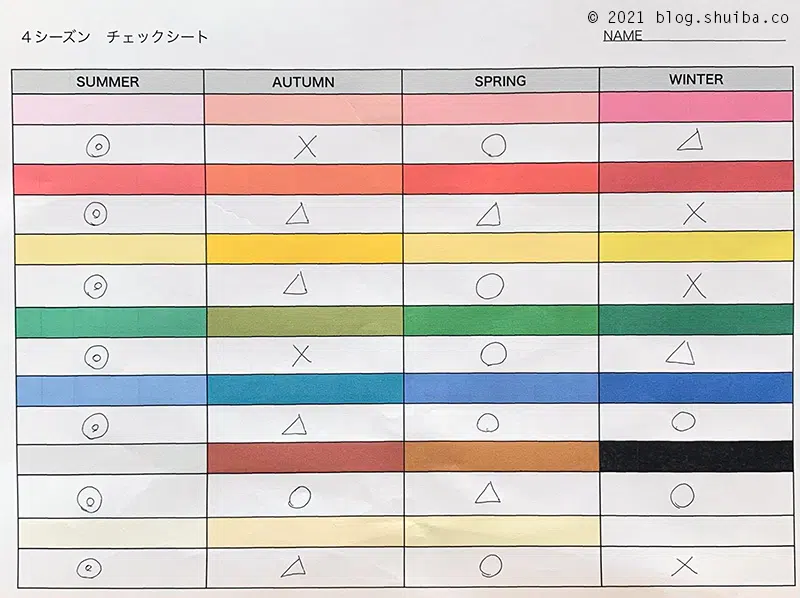 © 2021 blog.shuiba.co
４シーズン　チェックシート
NAME
SUMMER AUTUMN SPRING WINTER
◎ × ○ △
◎ △ △ ×
◎ △ ○ ×
◎ × ○ △
◎ △ ○ ○
◎ ○ △ ○
◎ △ ○ ×